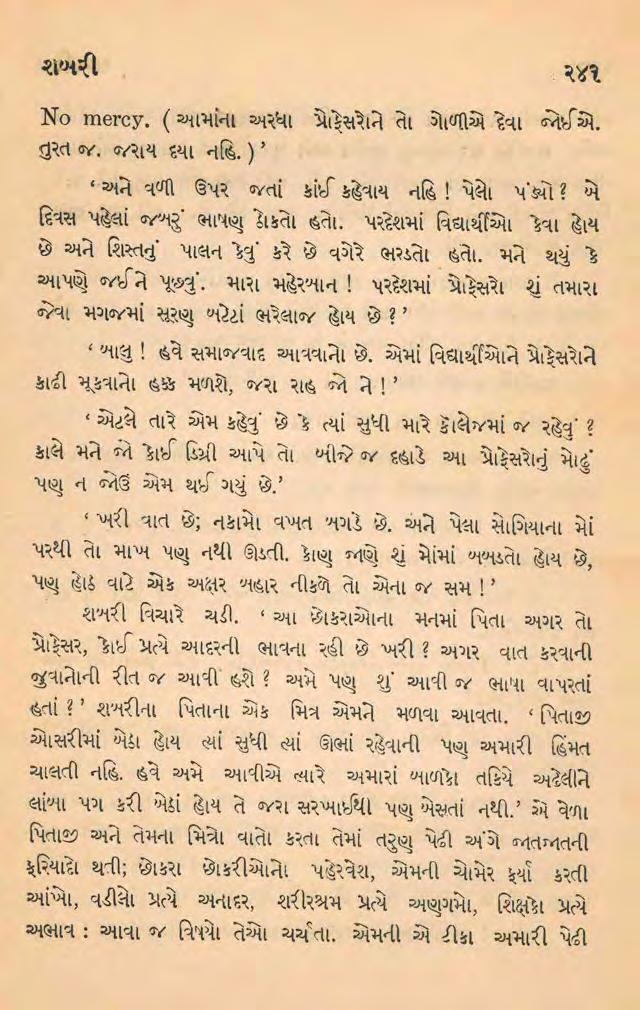 શબરી ૨૪૧
No mercy. ( આમાંના અરધા પ્રોફેસરોને તો ગોળીએ દેવા જોઈએ.
તુરત જ. જરાય દયા નહિ. )’
‘ અને વળી ઉપર જતાં કાંઈ કહેવાય નહિ ! પેલો પંડ્યો ? બે
દિવસ પહેલાં જબરું ભાષણ ઠોકતો હતો. પરદેશમાં વિદ્યાર્થીઓ કેવા હોય
છે અને શિસ્તનું પાલન કેવું કરે છે વગેરે ભરડતો હતો. મને થયું કે
આપણે જઈને પૂછવું. મારા મહેરબાન ! પરદેશમાં પ્રોફેસરો શું તમારા
જેવા મગજમાં સૂરણ બટેટાં ભરેલાજ હોય છે ? ’
‘ બાલુ ! હવે સમાજવાદ આવવાનો છે. એમાં વિદ્યાર્થીઓને પ્રોફેસરોને
કાઢી મૂકવાનો હક્ક મળશે, જરા રાહ જો ને ! ’
‘ એટલે તારે એમ કહેવું છે કે ત્યાં સુધી મારે કૉલેજમાં જ રહેવું ?
કાલે મને જો કોઈ ડિગ્રી આપે તો બીજે જ દહાડે આ પ્રોફેસરોનું મોઢું
પણ ન જોઉં એમ થઈ ગયું છે.’
‘ ખરી વાત છે; નકામો વખત બગડે છે. અને પેલા સોગિયાના મોં
પરથી તો માખ પણ નથી ઊડતી. કોણ જાણે શું મોંમાં બબડતો હોય છે,
પણ હોઠ વાટે એક અક્ષર બહાર નીકળે તો એના જ સમ ! ’
શબરી વિચારે ચડી. ‘ આ છોકરાઓના મનમાં પિતા અગર તો
પ્રોફેસર, કોઈ પ્રત્યે આદરની ભાવના રહી છે ખરી ? અગર વાત કરવાની
જુવાનોની રીત જ આવી હશે ? અમે પણ શું આવી જ ભાષા વાપરતાં
હતાં ? ’ શબરીના પિતાના એક મિત્ર એમને મળવા આવતા. ‘ પિતાજી
ઓસરીમાં બેઠા હોય ત્યાં સુધી ત્યાં ઊભાં રહેવાની પણ અમારી હિંમત
ચાલતી નહિ. હવે અમે આવીએ ત્યારે અમારાં બાળકો તકિયે અઢેલીને
લાંબા પગ કરી બેઠાં હોય તે જરા સરખાઈથી પણ બેસતાં નથી.’ એ વેળા
પિતાજી અને તેમના મિત્રો વાતો કરતા તેમાં તરુણ પેઢી અંગે જાતજાતની
ફરિયાદો થતી; છોકરા છોકરીઓનો પહેરવેશ, એમની ચોમેર ફર્યા કરતી
આંખો, વડીલો પ્રત્યે અનાદર, શરીરશ્રમ પ્રત્યે અણગમો, શિક્ષકો પ્રત્યે
અભાવ : આવા જ વિષયો તેઓ ચર્ચતા. એમની એ ટીકા અમારી પેઢી